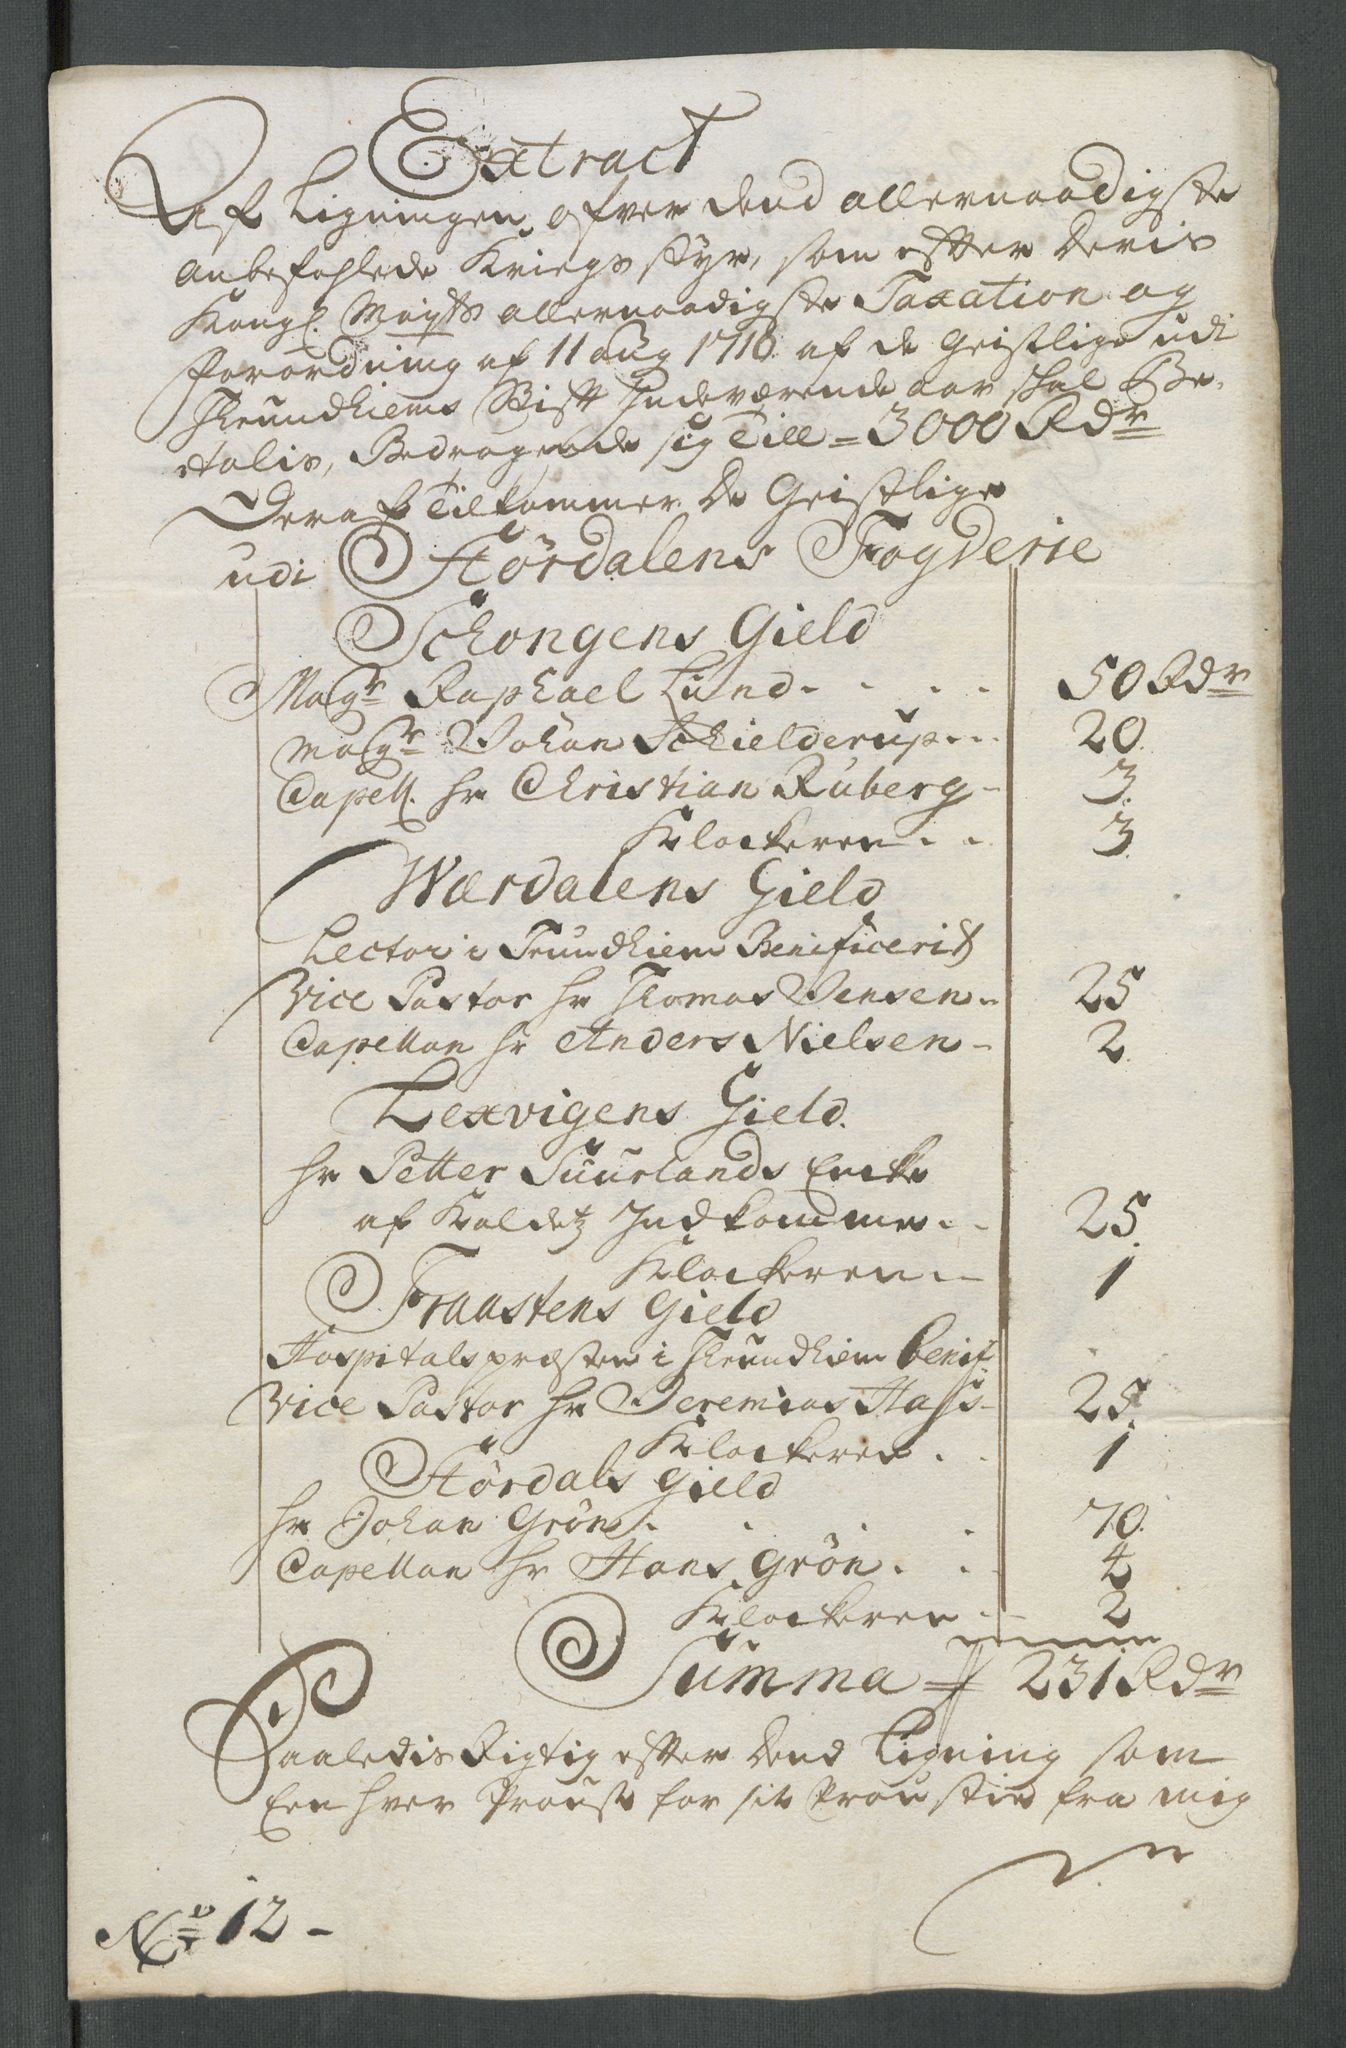 Extract
Af Ligningen ofver dend allernaadigste
anbefahlede Kriegs styr, som efter Deris
Kongl. Mayts allernaadigste Taxation og
forordning af 11 aug 1710 af de Geistlige udi
Trundhiems Stift Indeværende aar skal Be-
talis, Bedragende sig Till = 3000 Rdr
Deraf Tilkommer De Geistlige
udi Stördalens Fogderie
Schongens Gield
Magr Raphael Lund . . . . 50 Rdr
Magr Johan Schielderup . . . 20
Capell. hr Christian Ruberg - 3
Klockeren . . 3
Werdalens Gield
Lector i Trundhiem Beneficerit
Vice Pastor hr Thomas Jensen - 25
Capellan hr Anders Nielsen - 2
Lexvigens Gield
hr Petter Suurlands Encke
af Kaldetz Indkomme . . 25
Klockeren . - 1
Fraastens Gield
Hospitalspræsten i Trundhiem benif.
Vice Pastor hr Jeremias Hass - 25
Klockeren . . 1
Stördals Gield
hr Johan Grön . . . . 70
Capellan hr Hans Grön . . 4
Klockeren . - 2
Summa = 231 Rdr
Saaledis Rigtig efter Dend Ligning som
Een hver Proust for sit Proustie fra mig
No 12 -